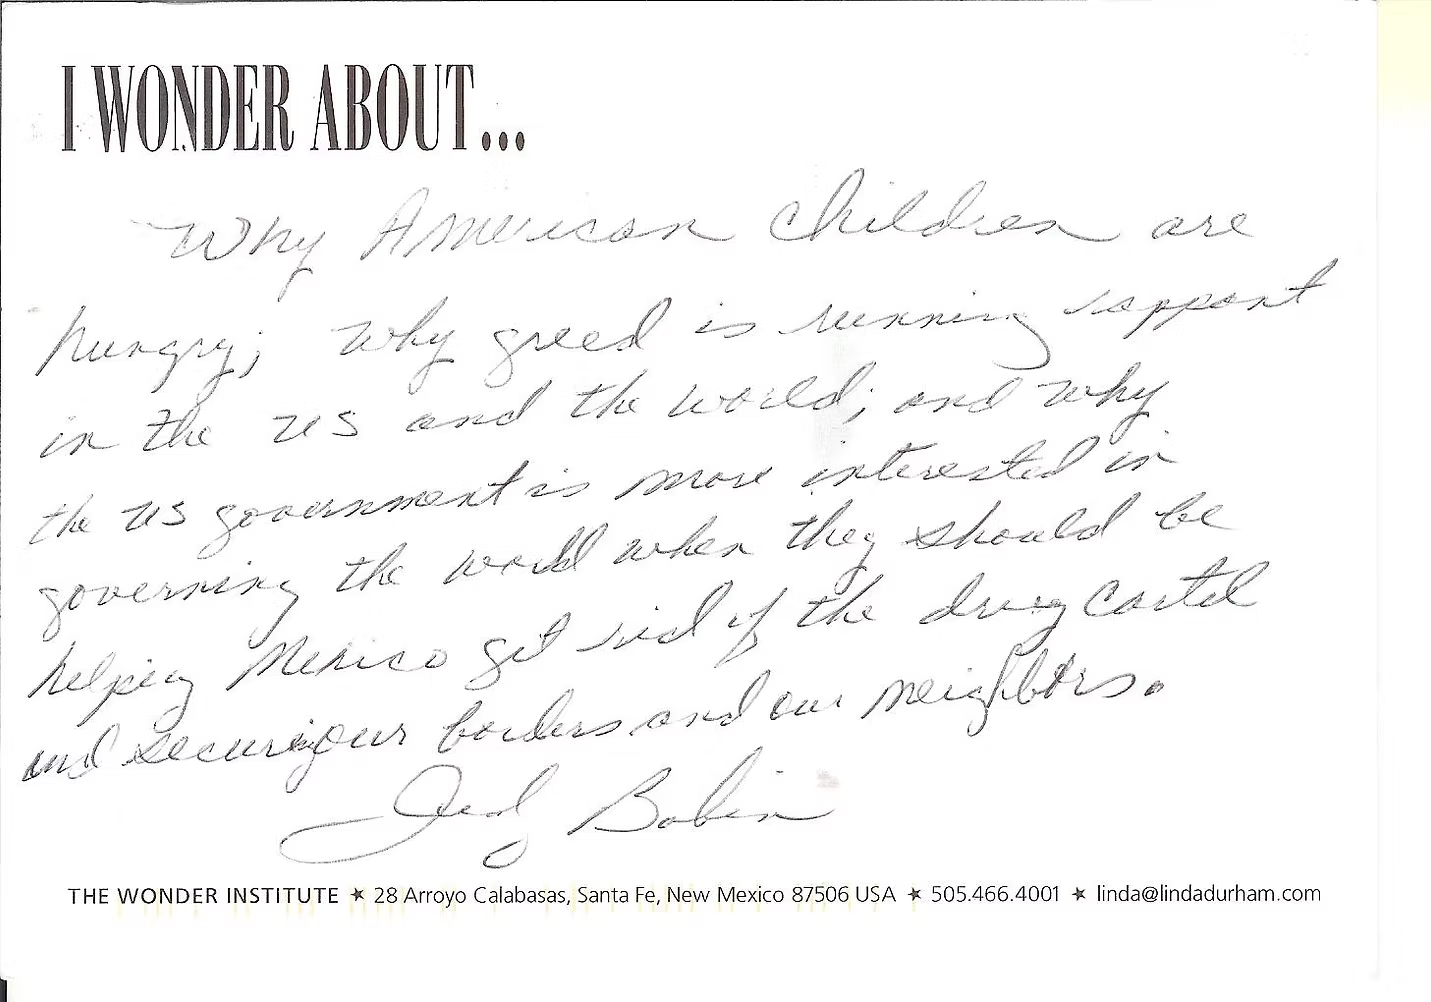 I WONDER ABOUT...
Why American children are
hungry; why greed is running rappant
in the US and the world; and why
the US government is more interested in
governing the world when they should be
helping Mexico get rid of the drug cartel
and securing our borders and our neighbors.
Judy Bobin
THE WONDER INSTITUTE ★ 28 Arroyo Calabasas, Santa Fe, New Mexico 87506 USA ★ 505.466.4001 ★ linda@lindadurham.com